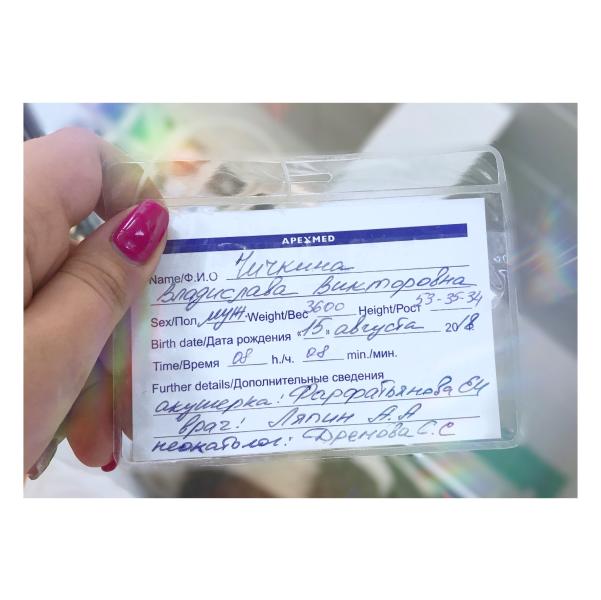 APEXMED
Name/Ф.И.О Чичкина
Владислава Викторовна
Sex/Пол муж. Weight/Вес 3600 Height/Рост 53-35-34
Birth date/Дата рождения «15» августа 2018
Time/Время 08 h./ч. 08 min./мин.
Further details/Дополнительные сведения
акушерка: Фарфатьянова Е4
врач: Ляпин А.А
неонатолог: Дремова С.С